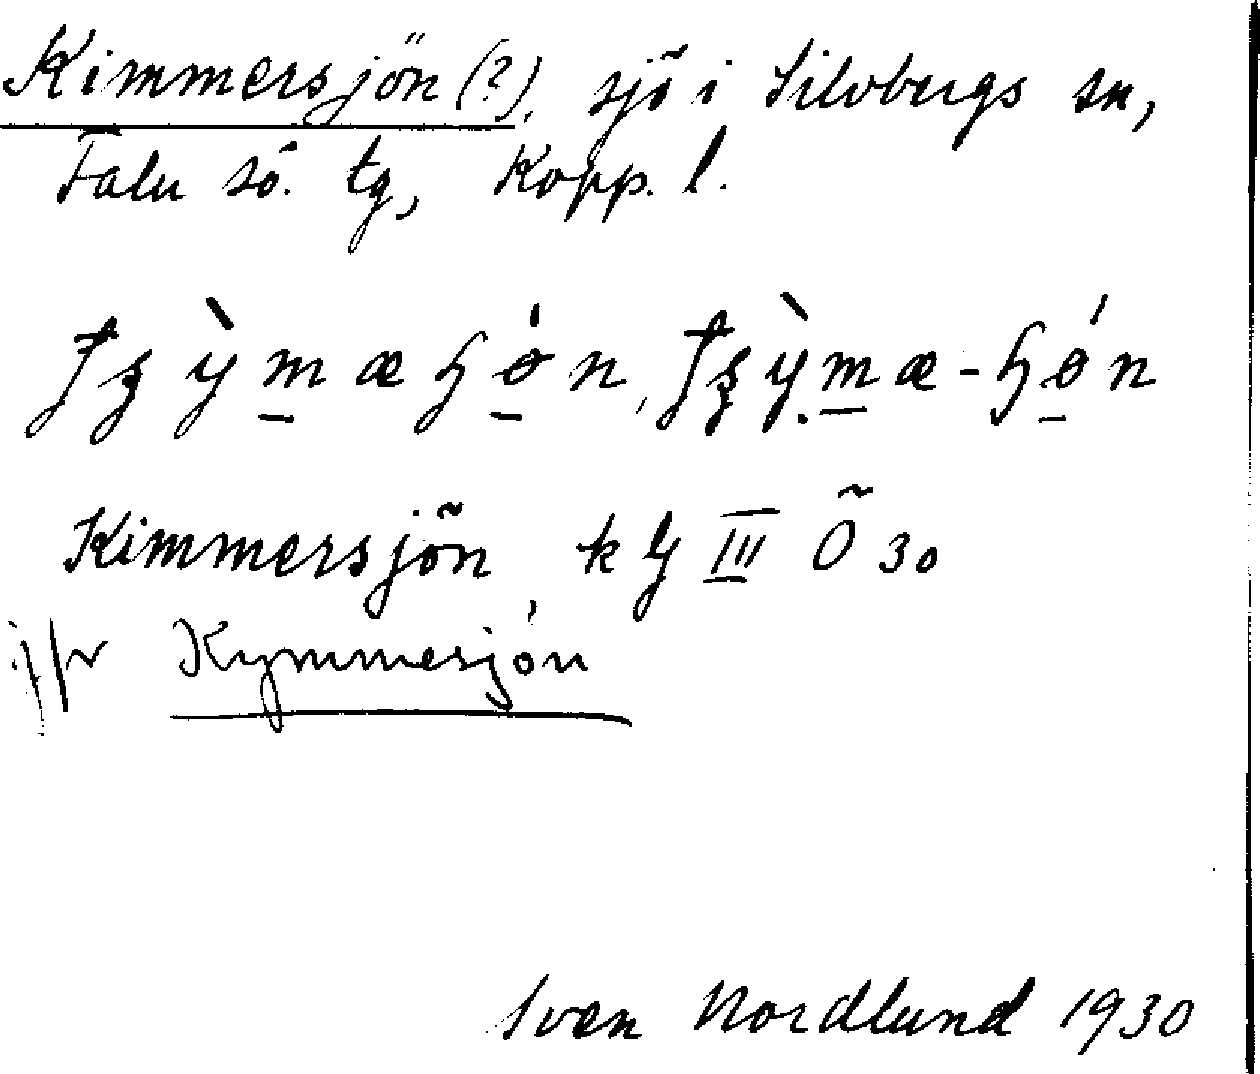 Kimmersjön (?), sjö i Silvbergs sn,
Falu sö. tg, Kopp. l.
Kimmersjön, k III Ö 30
jfr Kymmesjön
Sven Nordlund 1930